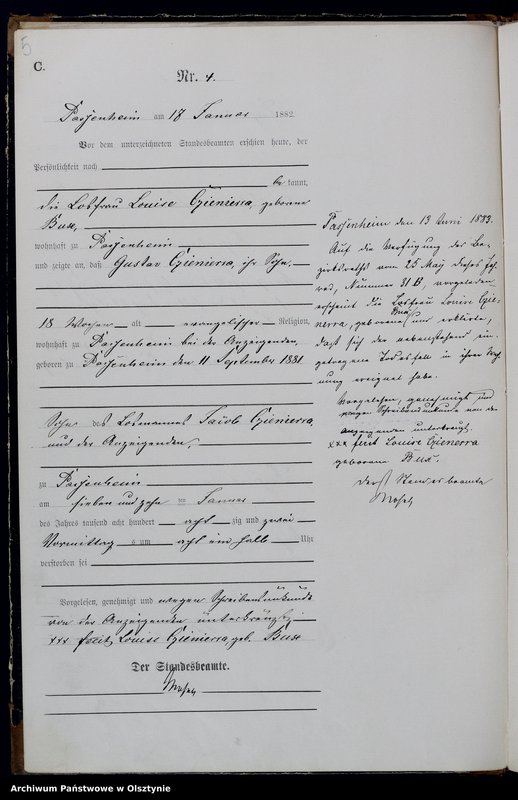 5
C.
Nr. 4.
Passenheim am 18 Januar 1882.
Vor dem unterzeichneten Standesbeamten erschien heute, der
Persönlichkeit nach
be kannt,
die Losfrau Louise Czienierra, geborene
Bux,
wohnhaft zu Passenheim
und zeigte an, daß Gustav Czienierra, ihr Sohn,
18 Wochen alt evangelischer Religion,
wohnhaft zu Passenheim bei der Anzeigenden,
geboren zu Passenheim den 11 September 1881
Sohn des Losmannes Jacob Czienierra,
und der Anzeigenden,
zu Passenheim
am siebenundzehn ten Januar
des Jahres tausend acht hundert acht zig und zwei
Vormittag s um acht ein halb Uhr
verstorben sei
Vorgelesen, genehmigt und wegen Schreibensunkunde
von der Anzeigenden unterkreuzt:
xxx fecit Louise Czienierra, geb. Bux
Der Standesbeamte.
Passenheim den 13 Juni 1883.
Auf die Verfügung des Be-
zirksraths vom 25 Maj dieses Jah-
res, Nummer 31 B, vorgeladen
erscheint die Losfrau Louise Czie-
nierra, geborene Bux und erklärte,
daß sich der nebenstehend ein-
getragene Todesfall in ihrer Woh-
nung ereignet habe.
Vorgelesen, genehmigt und
wegen Schreibensunkunde von der
Anzeigenden unterkreuzt.
xxx fecit Louise Czienerra
geborene Bux.
Der Standesbeamte
Archiwum Państwowe w Olsztynie